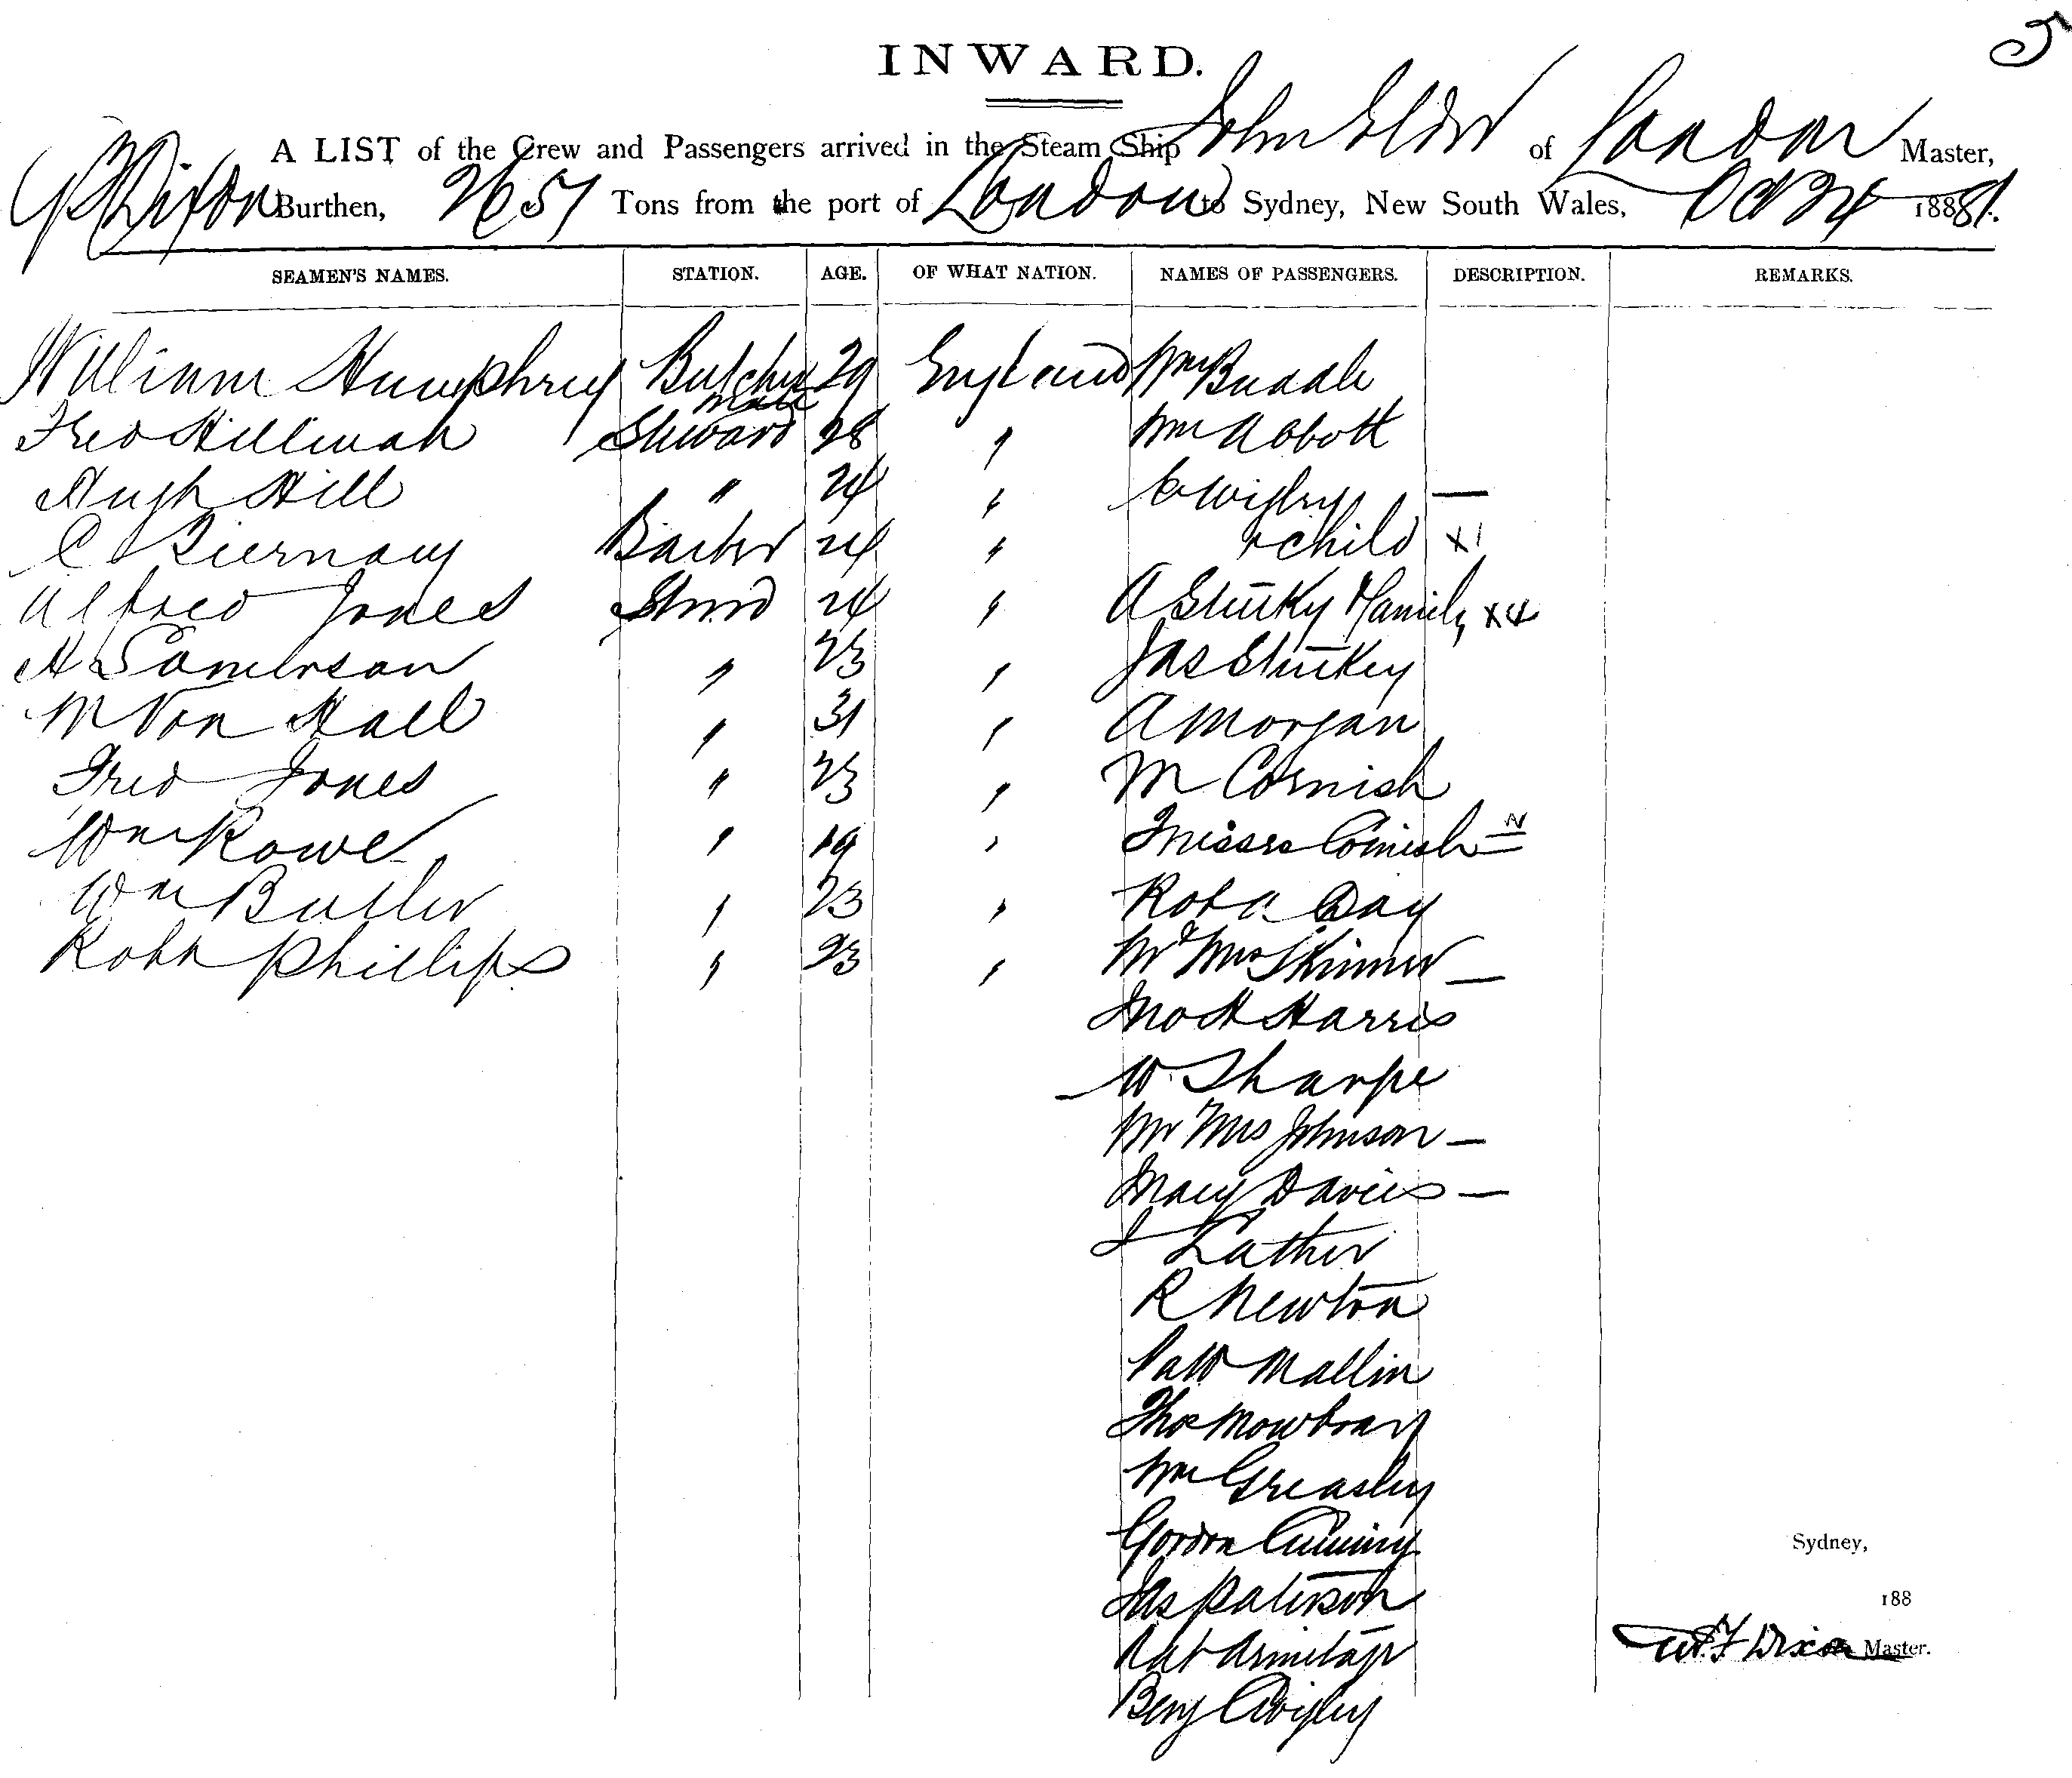 5
INWARD.
A LIST of the Crew and Passengers arrived in the Steam Ship John Elder of London Master,
Dixon Burthen, 2651 Tons from the port of London to Sydney, New South Wales, Oct 24 1881.
SEAMEN'S NAMES. STATION. AGE. OF WHAT NATION. NAMES OF PASSENGERS. DESCRIPTION. REMARKS.
William Humphrey Butcher 29 England Wm Buddle
mate
Fred Hillman Steward 28 " Wm Abbott
Hugh Hill " 24 " C Wigley —
C Tiernay Barber 24 " + child x1
Alfred Jones Stwrd 24 " A Stukey & Family x4
A Samerson " 23 " Jas Stukey
M Von Hall " 31 " A Morgan
Fred Jones " 23 " M Cornish
Wm Rowe " 19 " Cornish
Wm Butler " 23 " Robt Day
Robt Phillips " 23 " Mr & Mrs Skinner —
Jno H Harris
W Sharpe
Mr Mrs Johnson —
Mary Davies —
J Lather
R Newton
Patk Mallin
Thos Mowbray
Wm Greasley
Gordon Cuming
Jas Paterson
Armitage
Benj Wigley
Sydney,
188
Dixon Master.